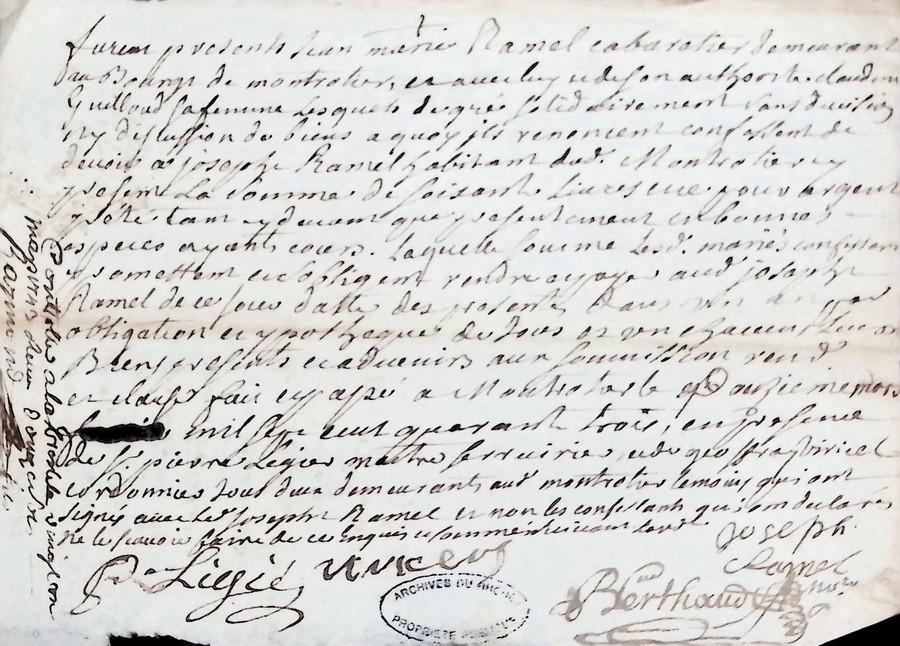 furent presents Jean marie Ramel cabaretier demeurant
au Bourg de montrotier, et avec luy et de son authorité claudine
Guilloud sa femme Lesquels de gré solidairement sans division
ny discussion de biens a quoy ils renoncent confessent de
devoir a joseph Ramel habitant dud. Montrotier cy
present La somme de soisante Livres pour argent
preté tant cy devant que presentement en bonnes
especes ayants cours. Laquelle somme Lesd. mariés confessants
promettent et obligent rendre a joseph
Ramel de ce jour datte des presentes dans un an par
obligation et ypotheque de tous et un chacun Leurs
Biens presents et advenirs aux soumission renon
et clause fait et passé a Montrotier le mors
mil sept cent quarante trois, en presence
de Sr. pierre Legier maitre serrurier, et de geoffray viricel
cordonnier tous deux demeurants aud. montrotier temoins qui ont
signés avec led. Joseph Ramel et non les confessants qui ont declarés
ne le scavoir faire de ce enquis et sommés
Joseph
Ramel
P Ligié
Berthaud
Controllé a la
ARCHIVES DU RHÔNE
PROPRIETE PUBLIQUE